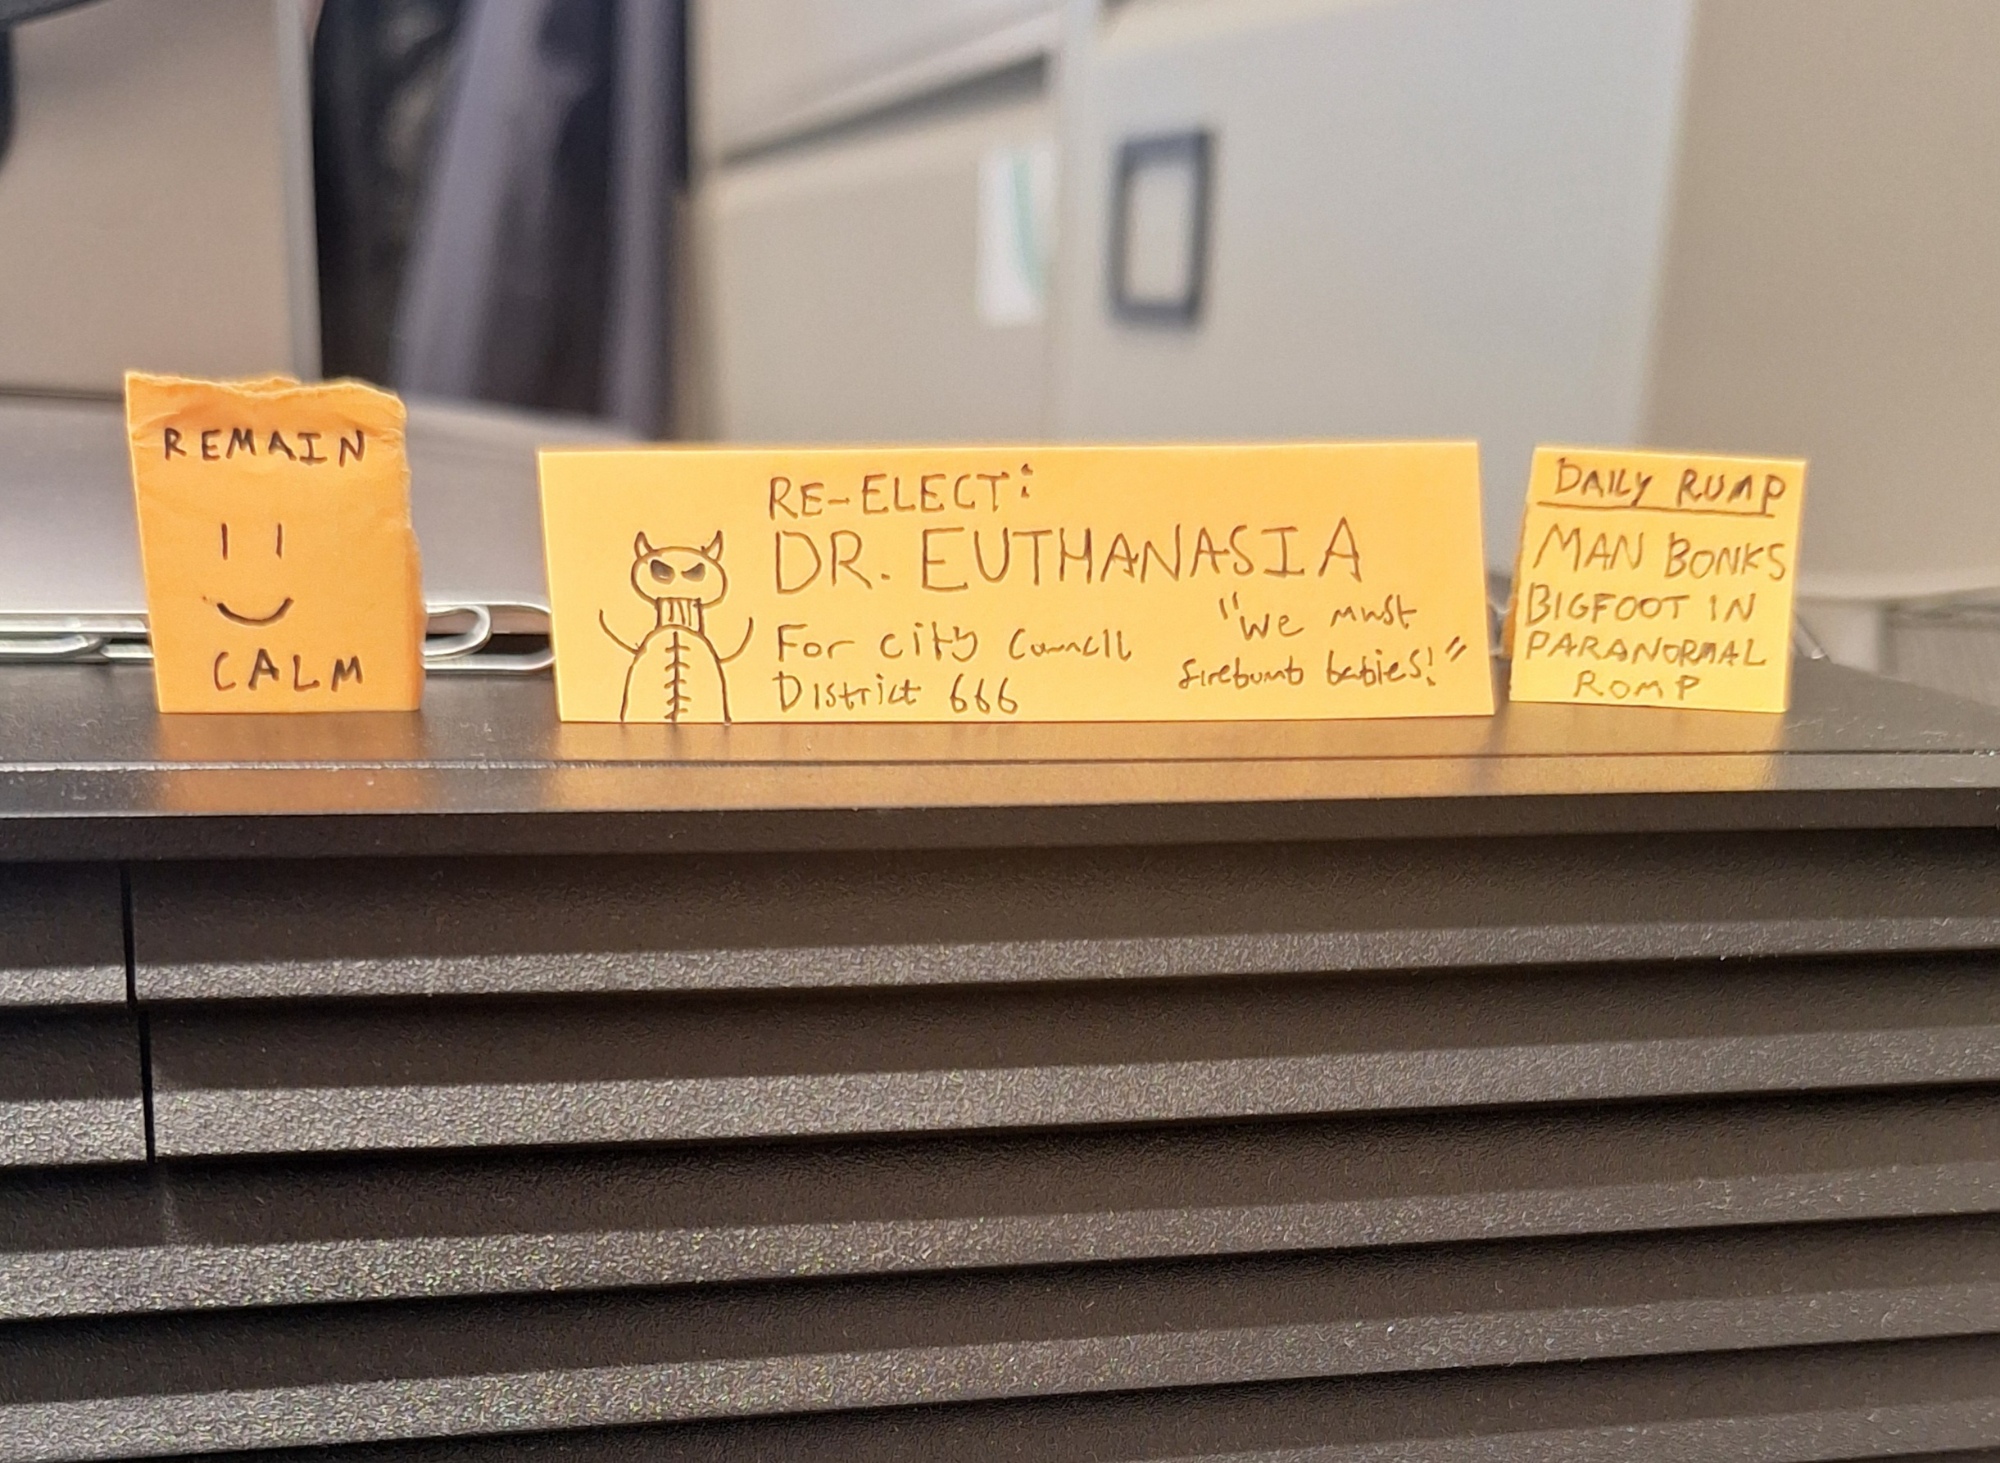 REMAIN
CALM
RE-ELECT:
DR. EUTHANASIA
For city Council
District 666
"We must
firebomb babies!"
DAILY RUMP
MAN BONKS
BIGFOOT IN
PARANORMAL
ROMP